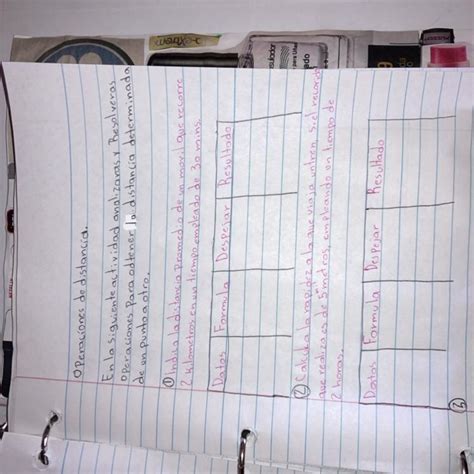 Operaciones de distancia.
En la siguiente actividad analizaras y Resolveras
operaciones Para obtener la distancia determinada
de un punto a otro.
① Indica la distancia Promedio de un movil que recorre
2 Kilometros en un tiempo empleado de 30 mins.
Datos Formula Despejar Resultado
② Calcula la rapidez a la que viaja un tren si el recorrido
que realiza es de 5 metros, empleando un tiempo de
2 horas.
Datos Formula Despejar Resultado
③